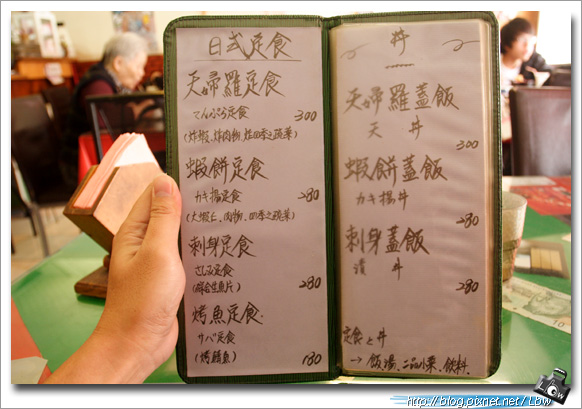 日式定食
天婦羅定食
てんぷら定食 300
(炸蝦、炸肉物、炸四季之蔬菜)
蝦餅定食
カキ揚定食 280
(大蝦仁、肉物、四季之蔬菜)
刺身定食
さしみ定食
(綜合生魚片) 280
烤魚定食
サバ定食
(烤鯖魚) 180
丼
天婦羅蓋飯
天 丼 300
蝦餅蓋飯
カキ揚丼 280
刺身蓋飯
漬 丼 280
定食と丼
→ 飯、湯、二品小菜、飲料.
http://blog.pixnet.net/Lbw